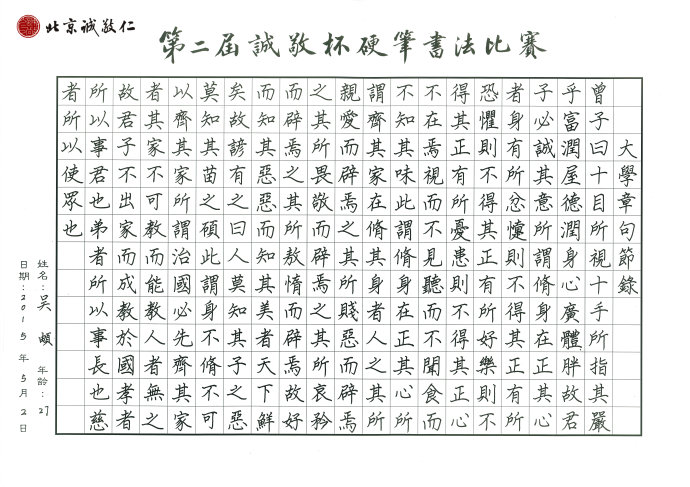 北京誠敬仁
第二屆誠敬杯硬筆書法比賽
大學章句節錄
曾子曰十目所視十手所指其嚴
乎富潤屋德潤身心廣體胖故君
子必誠其意所謂脩身在正其心
者身有所忿懥則不得其正有所
恐懼則不得其正有所好樂則不
得其正有所憂患則不得其正心
不在焉視而不見聽而不聞食而
不知其味此謂脩身在正其心所
謂齊其家在脩其身者人之其所
親愛而辟焉之其所賤惡而辟焉
之其所畏敬而辟焉之其所哀矜
而辟焉之其所敖惰而辟焉故好
而知其惡惡而知其美者天下鮮
矣故諺有之曰人莫知其子之惡
莫知其苗之碩此謂身不脩不可
以齊其家所謂治國必先齊其家
者其家不可教而能教人者無之
故君子不出家而成教於國孝者
所以事君也弟者所以事長也慈
者所以使眾也
姓名：吴 年齡：27
日期：2015年5月2日